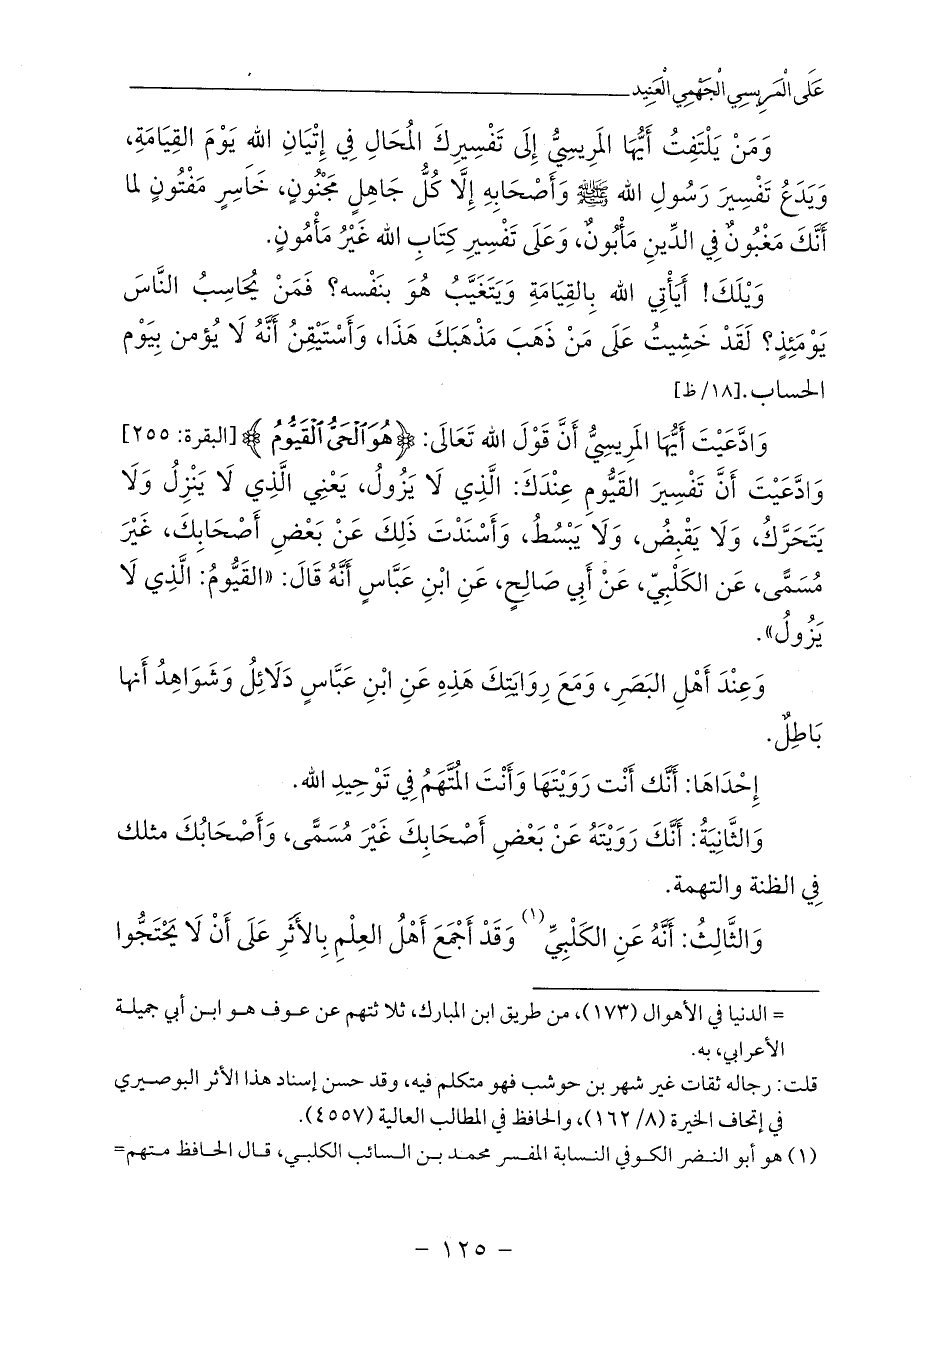 عَلَى الْمَرِيسِي الْجَهْمِي الْعَنِيد
وَمَنْ يَلْتَفِتُ أَيُّهَا المَرِيسِيُّ إِلَى تَفْسِيرِكَ المُحَالِ فِي إِتْيَانِ الله يَوْمَ القِيَامَةِ،
وَيَدَعُ تَفْسِيرَ رَسُولِ الله ﷺ وَأَصْحَابِهِ إِلَّا كُلُّ جَاهِلٍ مَجْنُونٍ، خَاسِرٍ مَفْتُونٍ لما
أَنَّكَ مَغْبُونٌ فِي الدِّينِ مَأْبُونٌ، وَعَلَى تَفْسِيرِ كِتَابِ الله غَيْرُ مَأْمُونٍ.
وَيْلَكَ! أَيَأْتِي الله بِالقِيَامَةِ وَيَتَغَيَّبُ هُوَ بِنَفْسِه؟ فَمَنْ يُحَاسِبُ النَّاسَ
يَوْمَئِذٍ؟ لَقَدْ خَشِيتُ عَلَى مَنْ ذَهَبَ مَذْهَبَكَ هَذَا، وَأَسْتَيْقِنُ أَنَّهُ لَا يُؤمن بِيَوْم
الحساب.[١٨/ظ]
وَادَّعَيْتَ أَيُّهَا المَرِيسِيُّ أَنَّ قَوْلَ الله تَعَالَى: ﴿هُوَ ٱلْحَىُّ ٱلْقَيُّومُ﴾ [البقرة: ٢٥٥]
وَادَّعَيْتَ أَنَّ تَفْسِيرَ القَيُّومِ عِنْدَكَ: الَّذِي لَا يَزُولُ، يَعْنِي الَّذِي لَا يَنْزِلُ وَلَا
يَتَحَرَّكُ، وَلَا يَقْبِضُ، وَلَا يَبْسُطُ، وَأَسْنَدْتَ ذَلِكَ عَنْ بَعْضِ أَصْحَابِكَ، غَيْرَ
مُسَمًّى، عَنِ الكَلْبِيِّ، عَنْ أَبِي صَالِحٍ، عَنِ ابْنِ عَبَّاسٍ أَنَّهُ قَالَ: «القَيُّومُ: الَّذِي لَا
يَزُولُ».
وَعِنْدَ أَهْلِ البَصَرِ، وَمَعَ رِوَايَتِكَ هَذِهِ عَنِ ابْنِ عَبَّاسٍ دَلَائِلُ وَشَوَاهِدُ أَنها
بَاطِلٌ.
إِحْدَاهَا: أَنَّك أَنْت رَوَيْتَهَا وَأَنْتَ المُتَّهَمُ فِي تَوْحِيدِ الله.
وَالثَّانِيَةُ: أَنَّكَ رَوَيْتَهُ عَنْ بَعْضِ أَصْحَابِكَ غَيْرَ مُسَمًّى، وَأَصْحَابُكَ مثلك
فِي الظنة والتهمة.
وَالثَّالِثُ: أَنَّهُ عَنِ الكَلْبِيِّ(١) وَقَدْ أَجْمَعَ أَهْلُ العِلْمِ بِالأَثَرِ عَلَى أَنْ لَا يَحْتَجُّوا
= الدنيا في الأهوال (١٧٣)، من طريق ابن المبارك، ثلاثتهم عن عوف هو ابن أبي جميلة
الأعرابي، به.
قلت: رجاله ثقات غير شهر بن حوشب فهو متكلم فيه، وقد حسن إسناد هذا الأثر البوصيري
في إتحاف الخيرة (٨/ ١٦٢)، والحافظ في المطالب العالية (٤٥٥٧).
(١) هو أبو النضر الكوفي النسابة المفسر محمد بن السائب الكلبي، قال الحافظ متهم=
- ١٢٥ -